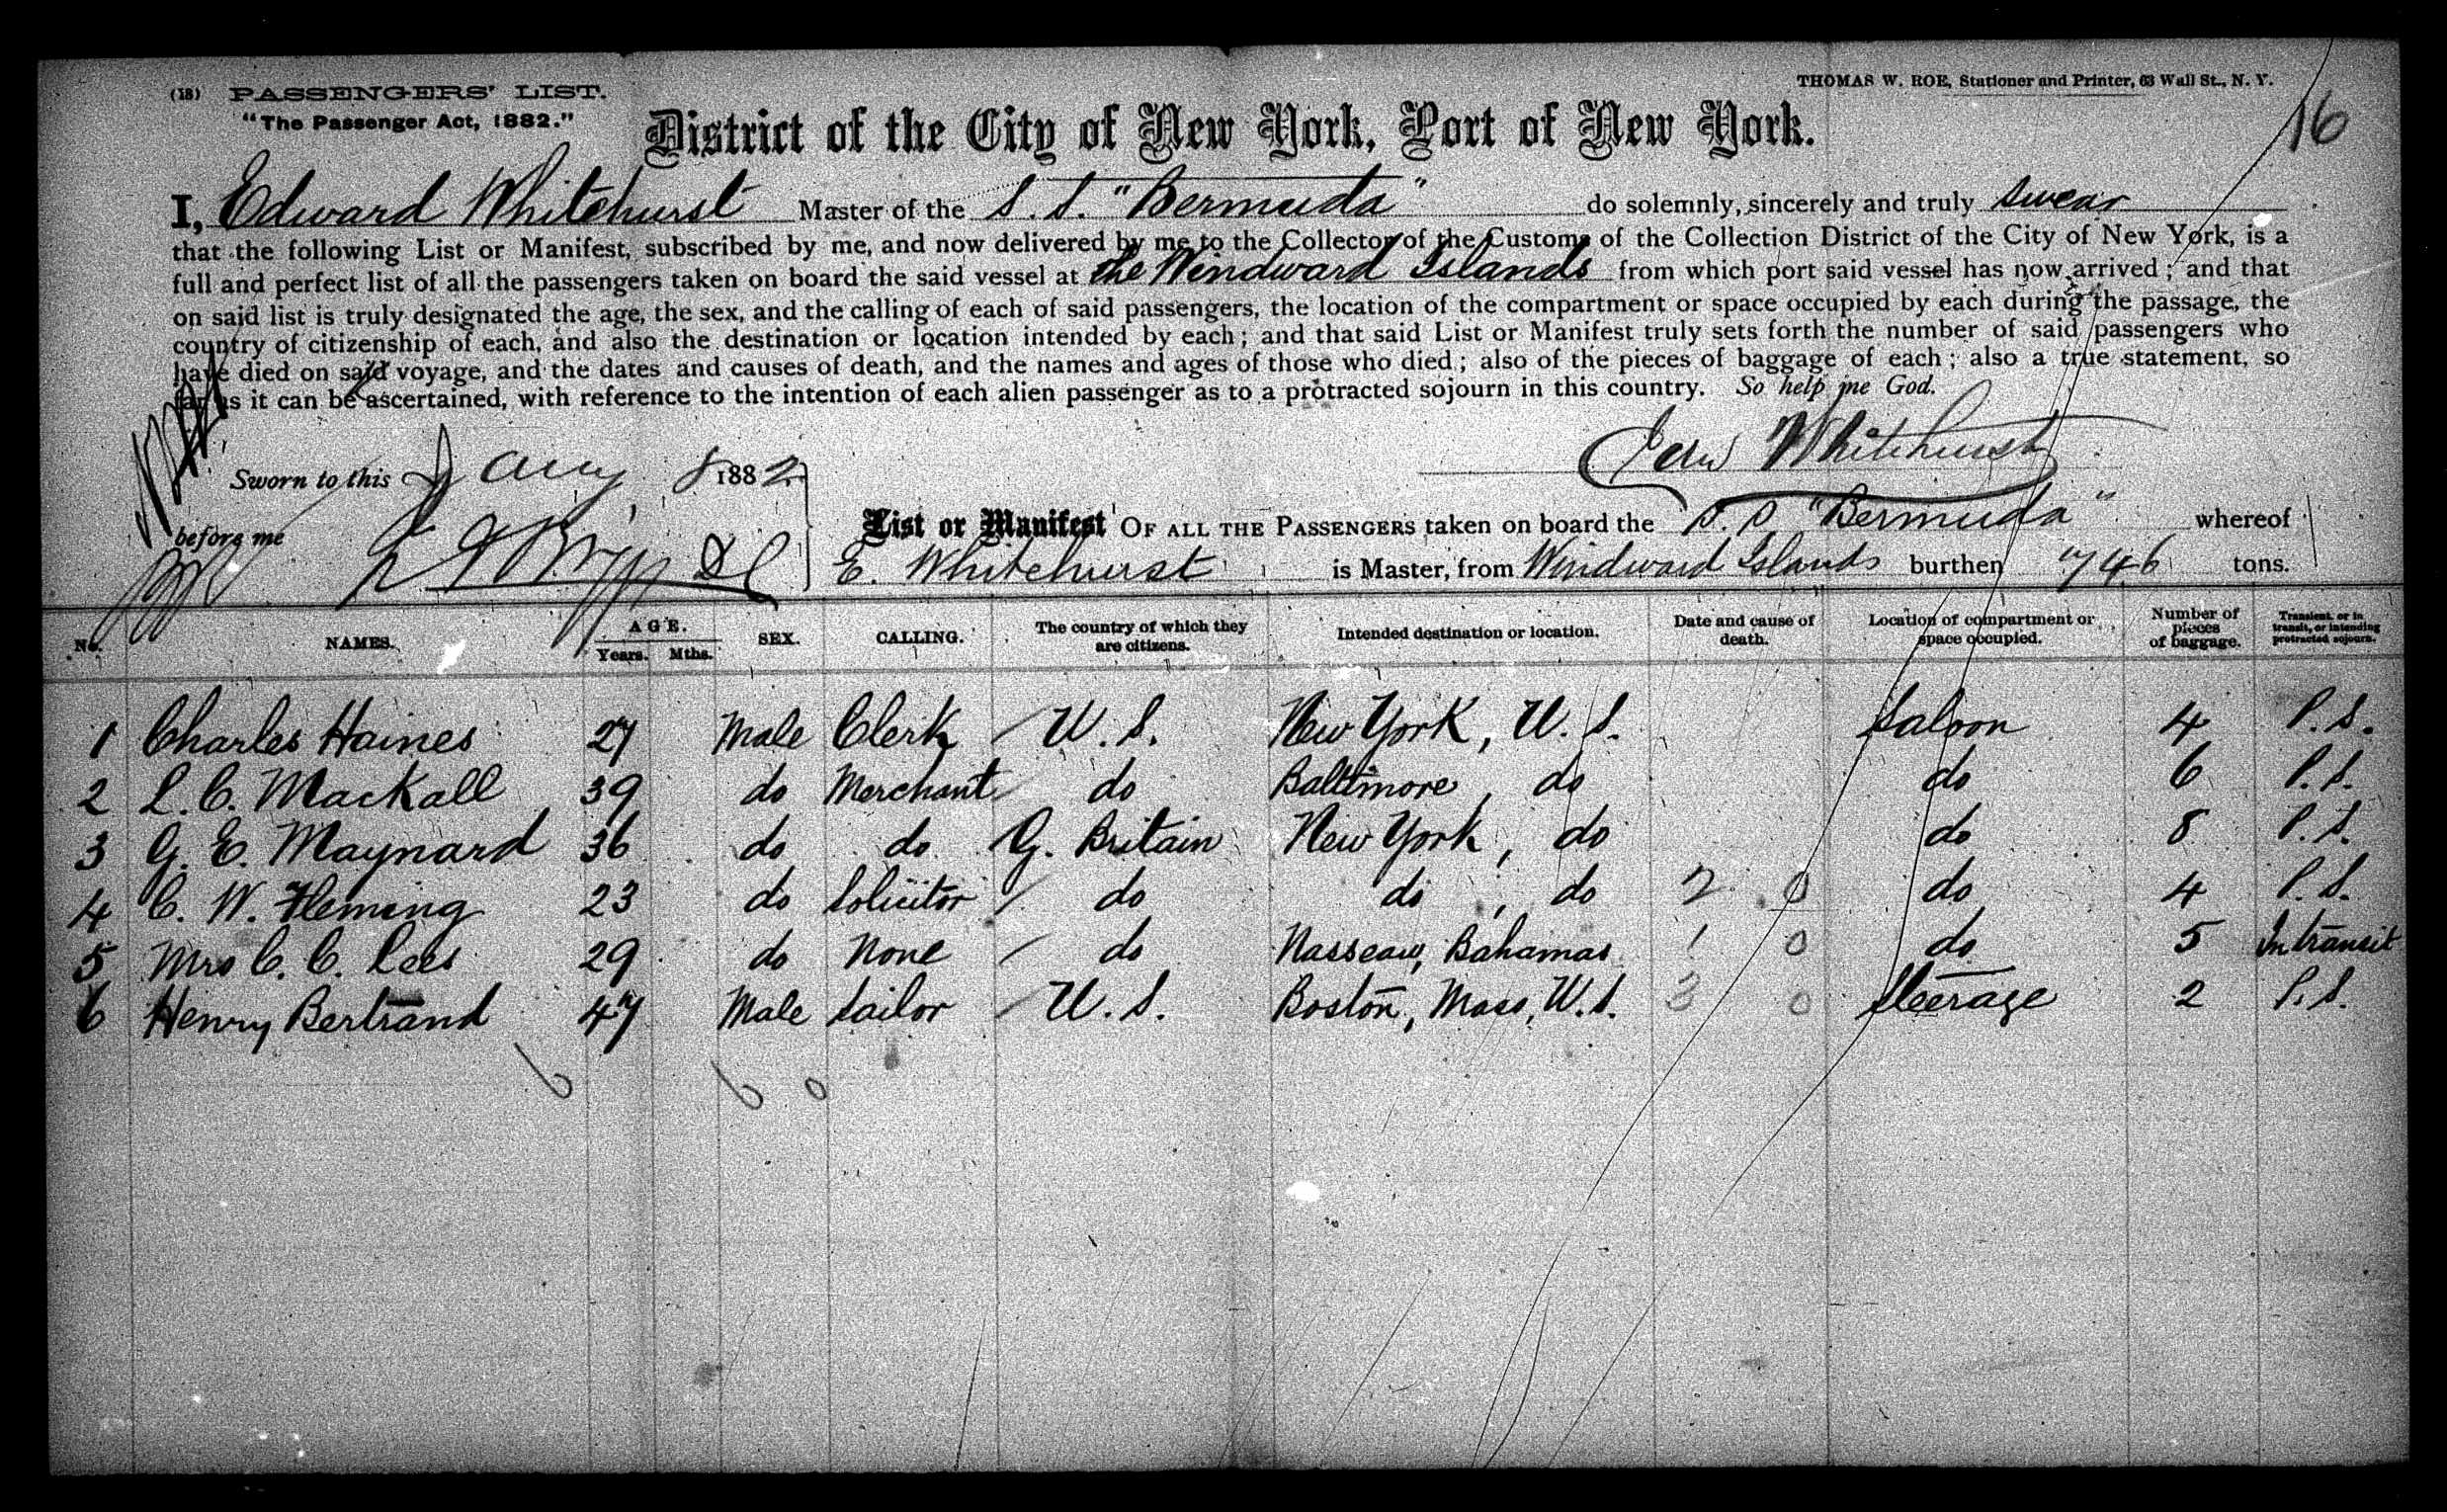 (18) PASSENGERS' LIST.
"The Passenger Act, 1882."
THOMAS W. ROE, Stationer and Printer, 63 Wall St., N. Y.
16
District of the City of New York, Port of New York.
I, Edward Whitehurst Master of the S.S. "Bermuda" do solemnly, sincerely and truly swear
that the following List or Manifest, subscribed by me, and now delivered by me to the Collector of the Customs of the Collection District of the City of New York, is a
full and perfect list of all the passengers taken on board the said vessel at the Windward Islands from which port said vessel has now arrived; and that
on said list is truly designated the age, the sex, and the calling of each of said passengers, the location of the compartment or space occupied by each during the passage, the
country of citizenship of each, and also the destination or location intended by each; and that said List or Manifest truly sets forth the number of said passengers who
have died on said voyage, and the dates and causes of death, and the names and ages of those who died; also of the pieces of baggage of each; also a true statement, so
far as it can be ascertained, with reference to the intention of each alien passenger as to a protracted sojourn in this country. So help me God.
Edw Whitehurst
Sworn to this Jany 8 1882
before me
List or Manifest OF ALL THE PASSENGERS taken on board the S.S. "Bermuda" whereof
E. Whitehurst is Master, from Windward Islands burthen 746 tons.
No. NAMES. AGE. Years. Mths. SEX. CALLING. The country of which they are citizens. Intended destination or location. Date and cause of death. Location of compartment or space occupied. Number of pieces of baggage. Transient, or in transit, or intending protracted sojourn.
1 Charles Haines 27 Male Clerk U.S. New York, U.S. Saloon 4 P.S.
2 L. C. Mackall 39 do Merchant do Baltimore, do do 6 P.S.
3 G. E. Maynard 36 do do G. Britain New York, do do 8 P.S.
4 C. W. Fleming 23 do Solicitor do do, do 2 0 do 4 P.S.
5 Mrs C. C. Lees 29 do None do Nasseau, Bahamas 1 0 do 5 In transit
6 Henry Bertrand 47 Male Sailor U.S. Boston, Mass, U.S. 3 0 Steerage 2 P.S.
6 6 0